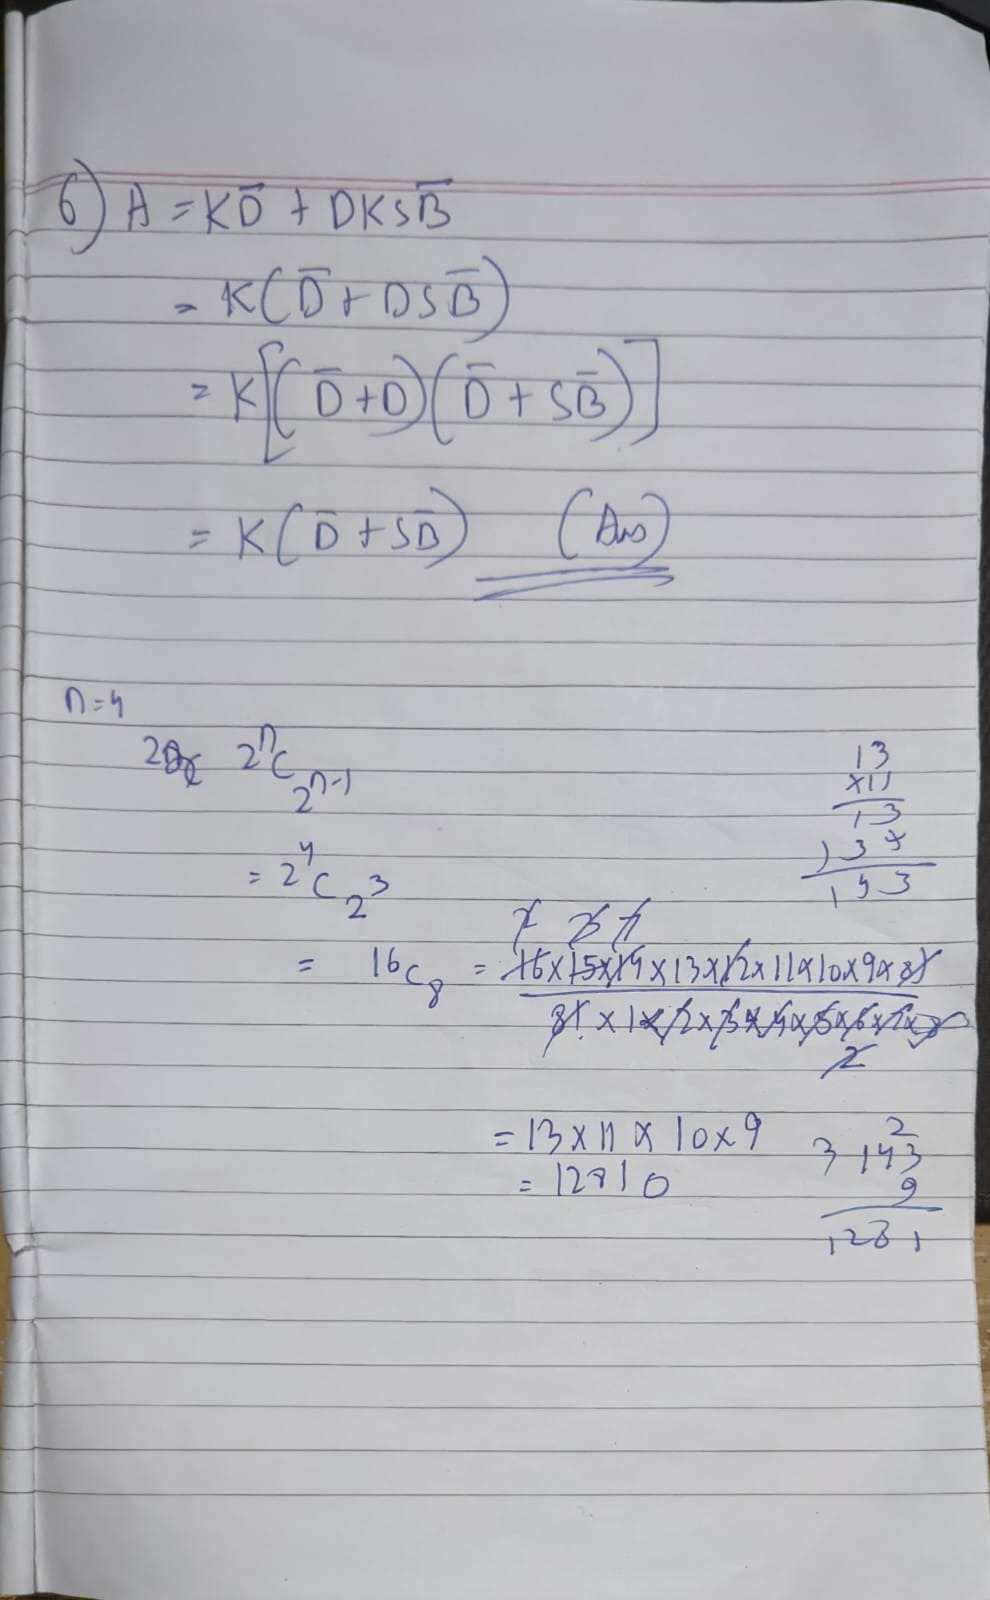 6) A = KD̅ + DKSB̅
= K(D̅ + DSB̅)
= K[(D̅+D)(D̅ + SB̅)]
= K(D̅ + SB̅) (Ans)
n=4
2ⁿC 2ⁿ⁻¹
= 2⁴C 2³
= 16C8 = 16×15×14×13×12×11×10×9×8! / 8! × 1×2×3×4×5×6×7×8
2
= 13 × 11 × 10 × 9
= 12810
13
×11
13
13×
143
2
3 143
9
1281